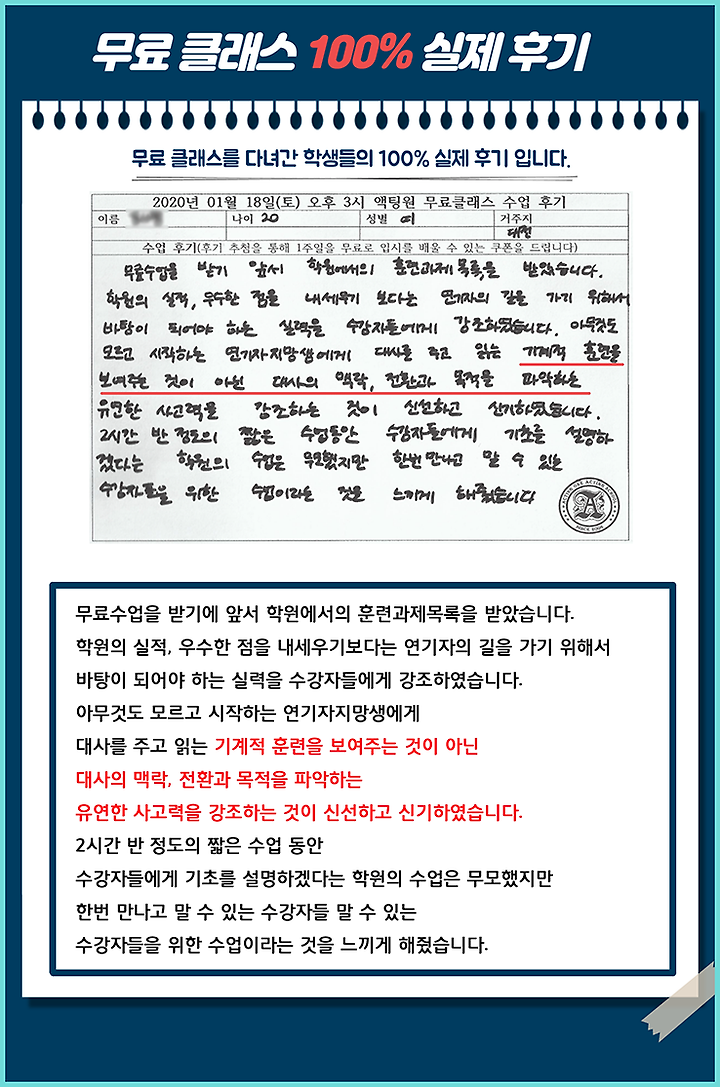 무료 클래스 100% 실제 후기
무료 클래스를 다녀간 학생들의 100% 실제 후기 입니다.
2020년 01월 18일(토) 오후 3시 액팅원 무료클래스 수업 후기
이름 나이 20 성별 여 거주지
대전
수업 후기(후기 추첨을 통해 1주일을 무료로 입시를 배울 수 있는 쿠폰을 드립니다)
무료수업을 받기 앞서 학원에서의 훈련과제목록을 받았습니다.
학원의 실적, 우수한 점을 내세우기 보다는 연기자의 길을 가기 위해서
바탕이 되어야 하는 실력을 수강자들에게 강조하였습니다. 아무것도
모르고 시작하는 연기자지망생에게 대사를 주고 읽는 기계적 훈련을
보여주는 것이 아닌 대사의 맥락, 전환과 목적을 파악하는
유연한 사고력을 강조하는 것이 신선하고 신기하였습니다.
2시간 반 정도의 짧은 수업동안 수강자들에게 기초를 설명하
겠다는 학원의 수업은 무모했지만 한번 만나고 말 수 있는
수강자들을 위한 수업이라는 것은 느끼게 해줬습니다
SINCE
무료수업을 받기에 앞서 학원에서의 훈련과제목록을 받았습니다.
학원의 실적, 우수한 점을 내세우기보다는 연기자의 길을 가기 위해서
바탕이 되어야 하는 실력을 수강자들에게 강조하였습니다.
아무것도 모르고 시작하는 연기자지망생에게
대사를 주고 읽는 기계적 훈련을 보여주는 것이 아닌
대사의 맥락, 전환과 목적을 파악하는
유연한 사고력을 강조하는 것이 신선하고 신기하였습니다.
2시간 반 정도의 짧은 수업 동안
수강자들에게 기초를 설명하겠다는 학원의 수업은 무모했지만
한번 만나고 말 수 있는 수강자들 말 수 있는
수강자들을 위한 수업이라는 것을 느끼게 해줬습니다.